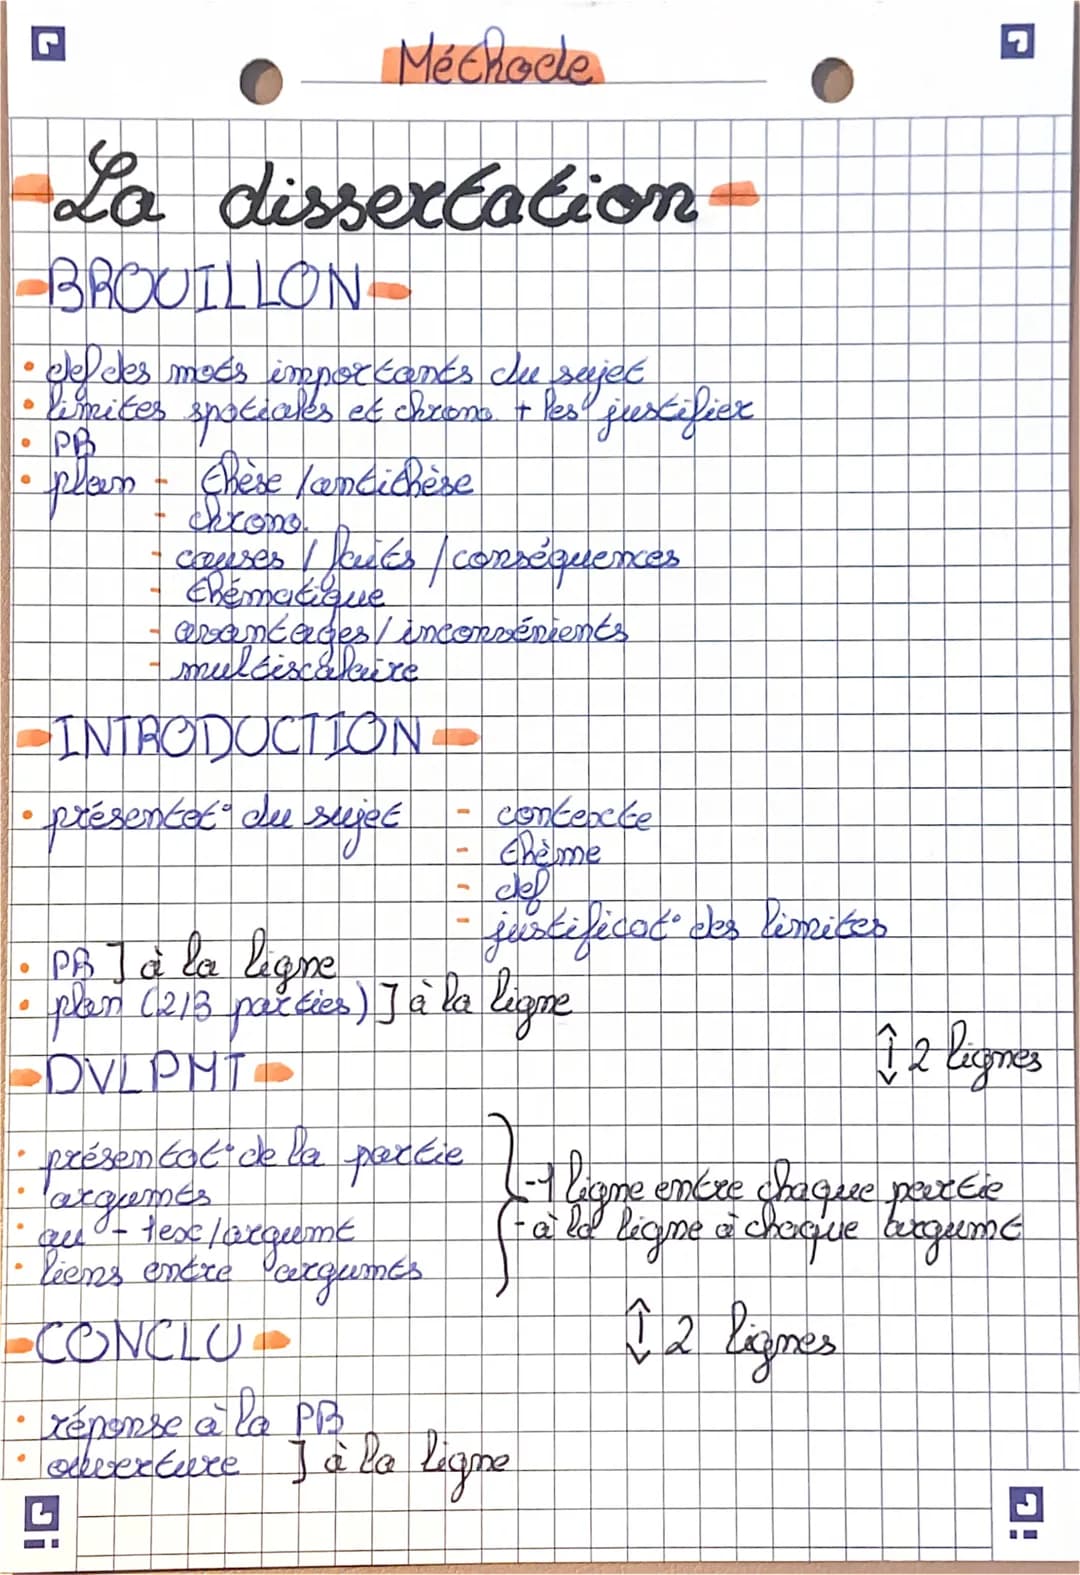 Méthode
La dissertation
BROUILLON
• def des mots importants du sujet
• limites spatiales et chrono. + les justifier
• PB
• plan - thèse / antithèse
- chrono.
- causes / faits / conséquences
- thématique
- avantages / inconvénients
- multiscalaire
INTRODUCTION
• présentat° du sujet - contexte
- thème
- def
- justificat° des limites
• PB ] à la ligne
• plan (2/3 parties) ] à la ligne
↕ 2 lignes
DVLPMT
• présentat° de la partie
• argumts
- 1 ligne entre chaque partie
• au - 1ex/argumt
- à la ligne à chaque argumt
• liens entre argumts
CONCLU
↕ 2 lignes
• réponse à la PB
• ouverture ] à la ligne